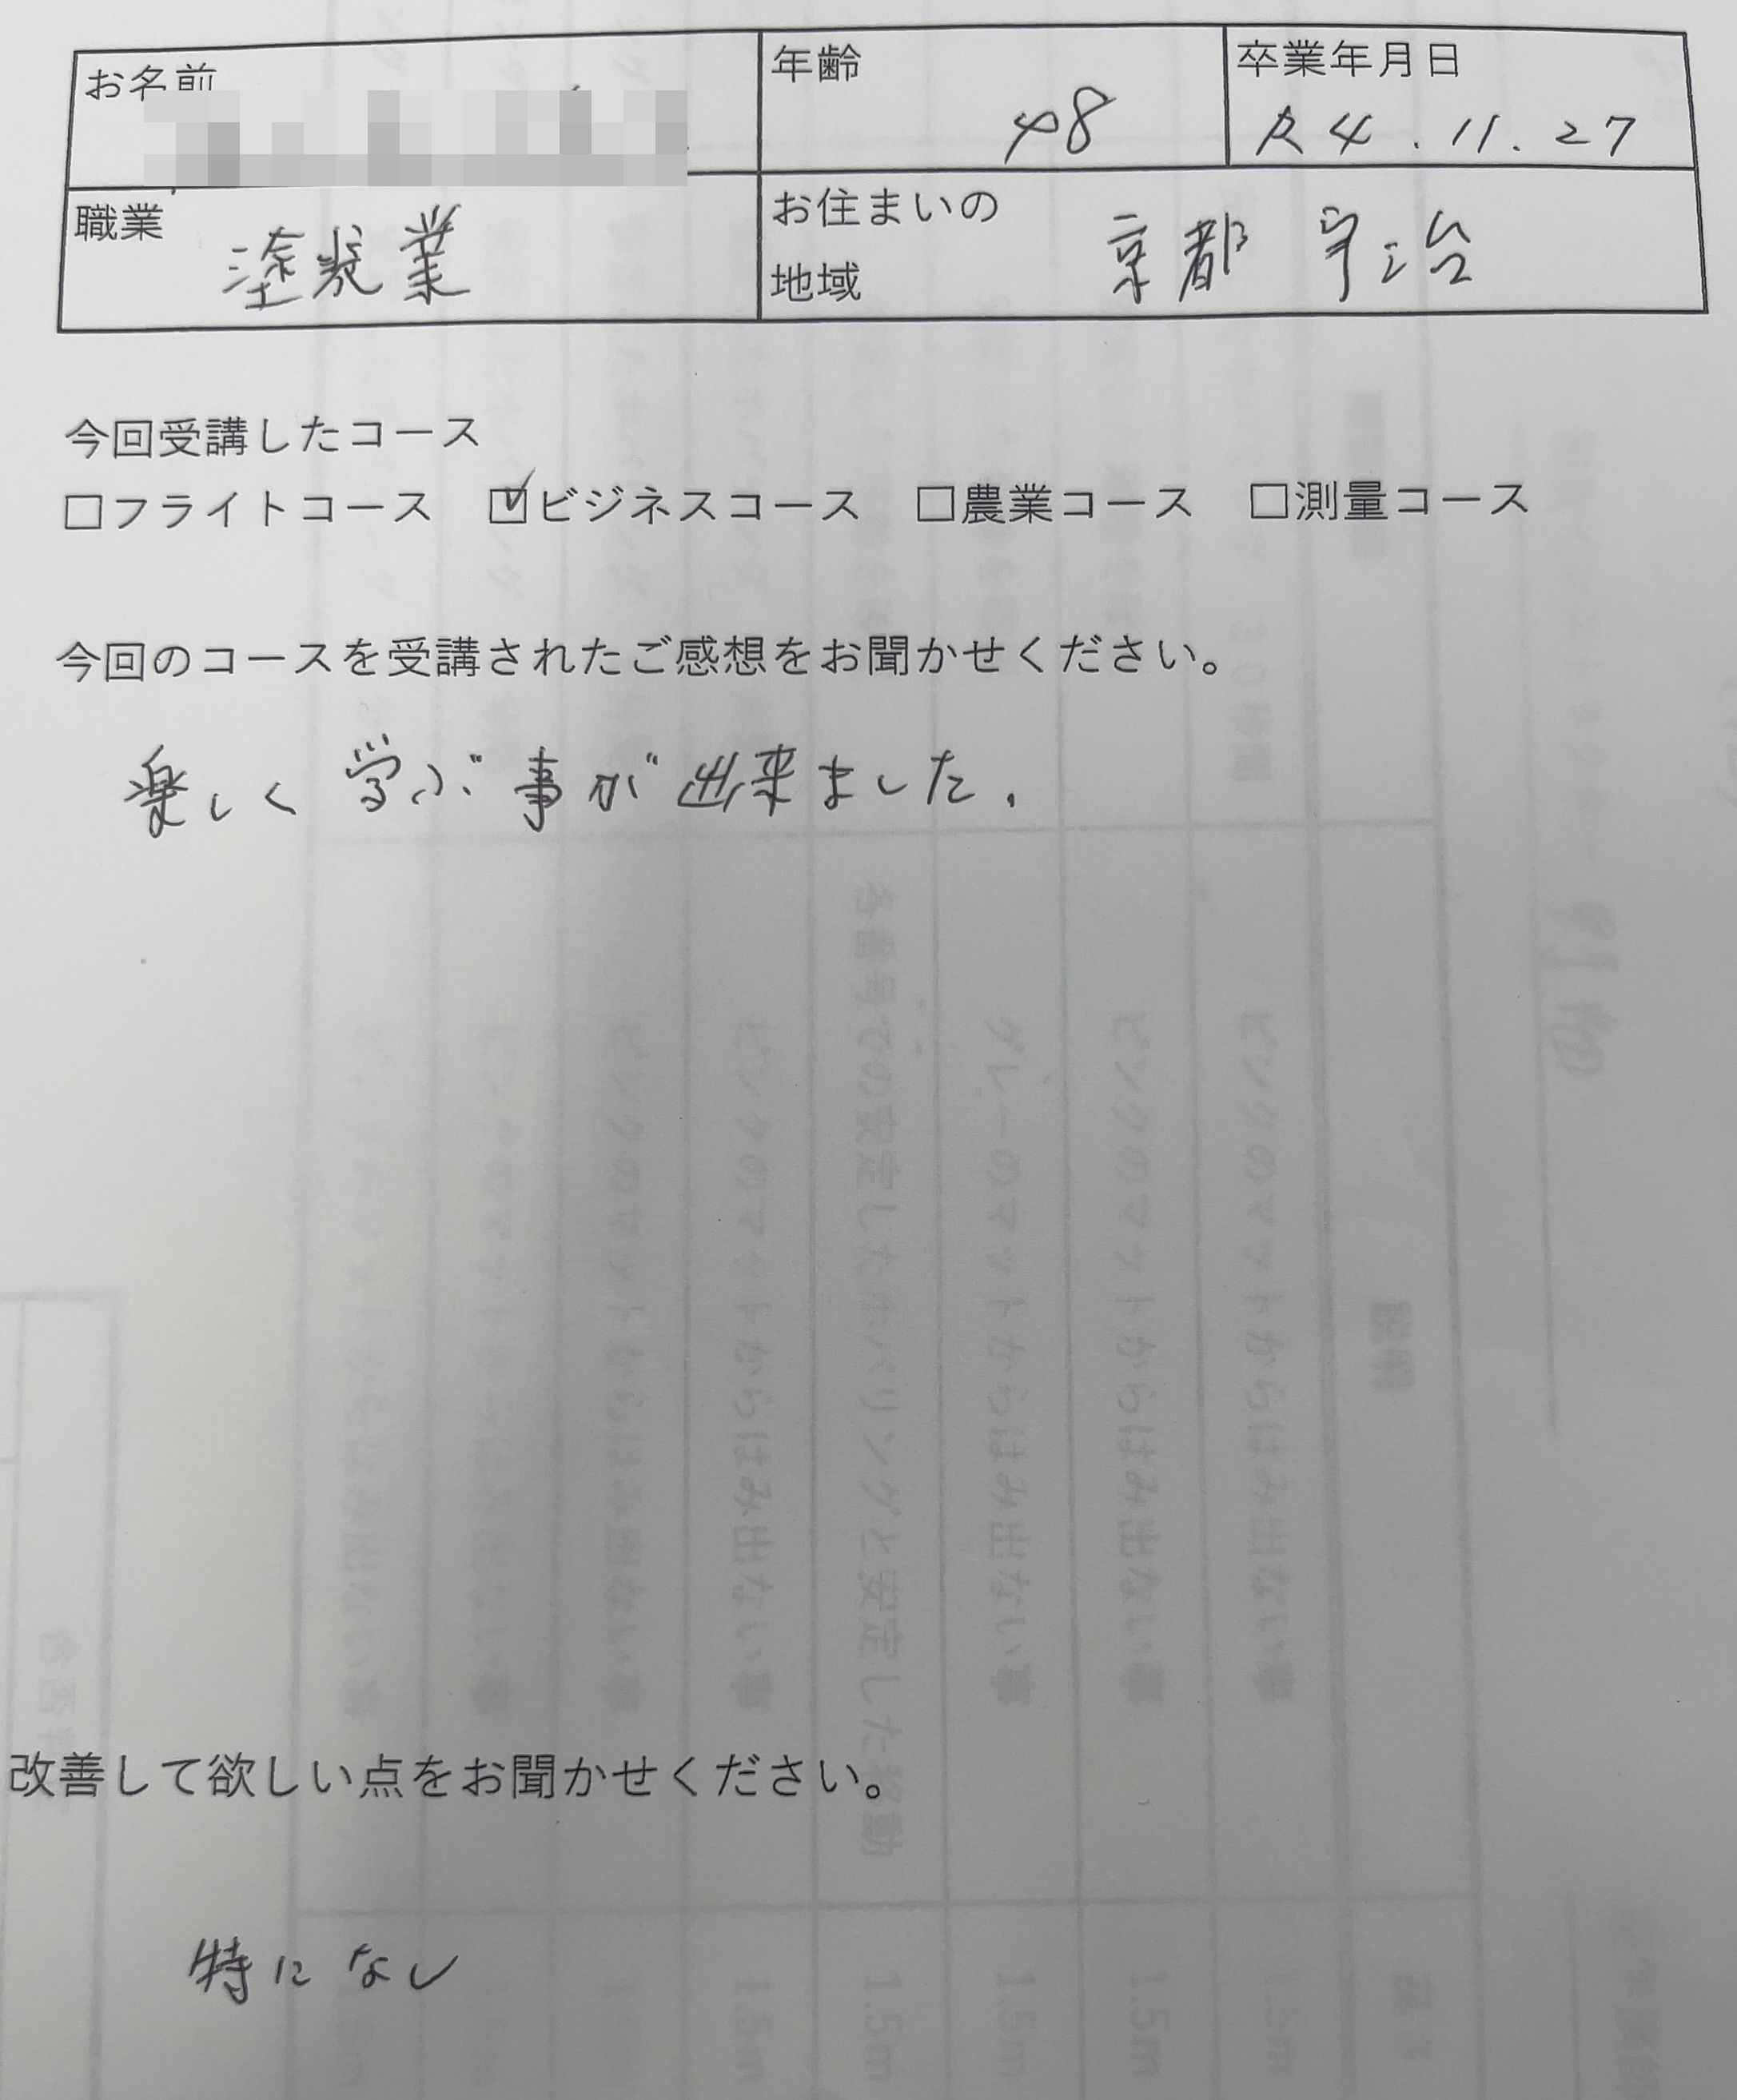 お名前
年齢
48
卒業年月日
R4.11.27
職業
塗装業
お住まいの
地域
京都 宇治
今回受講したコース
□フライトコース ☑ビジネスコース □農業コース □測量コース
今回のコースを受講されたご感想をお聞かせください。
楽しく学ぶ事が出来ました.
改善して欲しい点をお聞かせください。
特になし